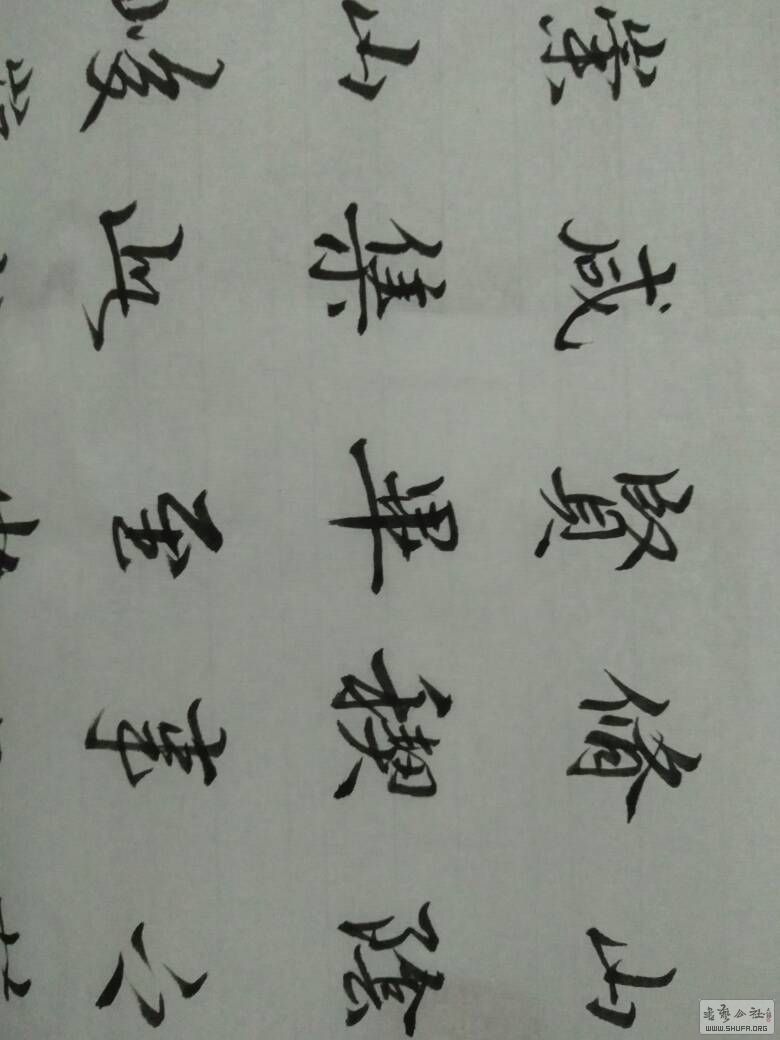 山陰之
脩稧事
賢畢至
咸集此
崇山峻
书艺公社
WWW.SHUFA.ORG